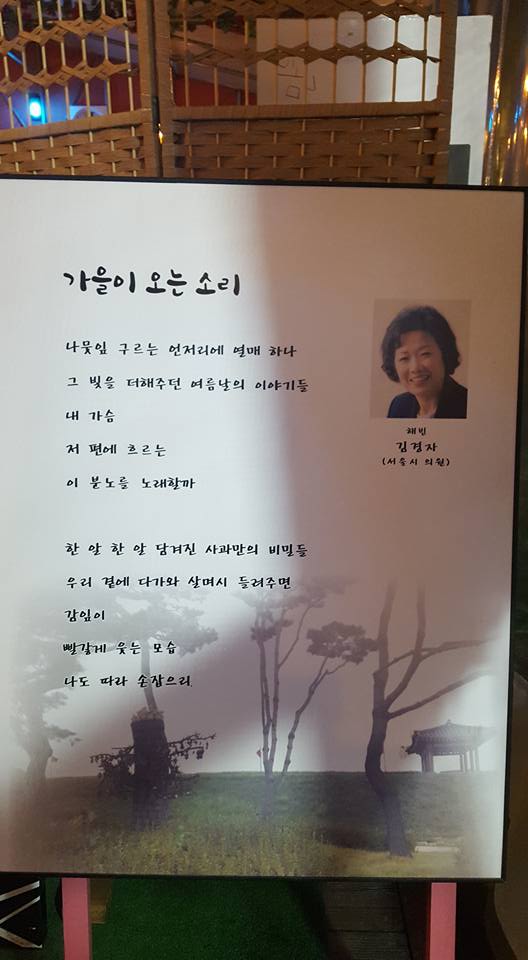 가을이 오는 소리
나뭇잎 구르는 언저리에 열매 하나
그 빛을 더해주던 여름날의 이야기들
내 가슴
저 편에 흐르는
이 분노를 노래할까
한 알 한 알 담겨진 사과만의 비밀들
우리 곁에 다가와 살며시 들려주면
감잎이
빨갛게 웃는 모습
나도 따라 손잡으리.
해빈
김경자
(서울시 의원)